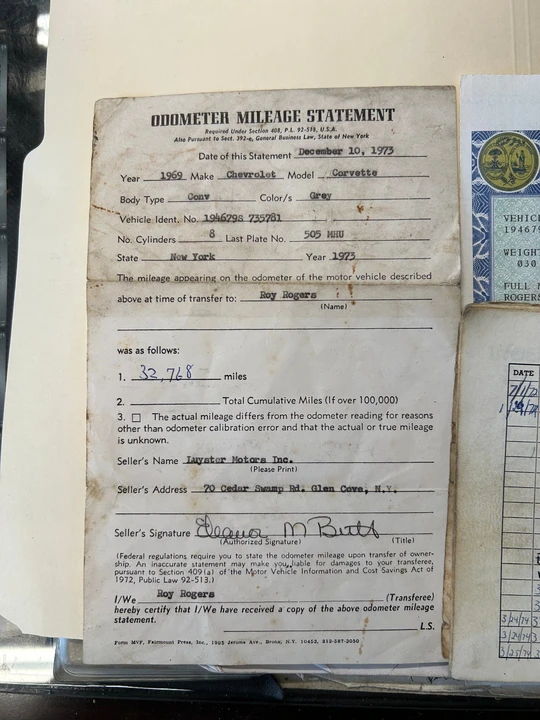 ODOMETER MILEAGE STATEMENT
Required Under Section 408, P.L. 92-513, U.S.A.
Also Pursuant to Sect. 392-e, General Business Law, State of New York
Date of this Statement December 10, 1973
Year 1969 Make Chevrolet Model Corvette
Body Type Conv Color/s Grey
Vehicle Ident. No. 194679S 735781
No. Cylinders 8 Last Plate No. 505 MHU
State New York Year 1973
The mileage appearing on the odometer of the motor vehicle described
above at time of transfer to: Roy Rogers
(Name)
was as follows:
1. 32,768 miles
2. Total Cumulative Miles (If over 100,000)
3. ☐ The actual mileage differs from the odometer reading for reasons
other than odometer calibration error and that the actual or true mileage
is unknown.
Seller's Name Luyster Motors Inc.
(Please Print)
Seller's Address 70 Cedar Swamp Rd. Glen Cove, N.Y.
Seller's Signature Eleanor M Butt
(Authorized Signature) (Title)
(Federal regulations require you to state the odometer mileage upon transfer of owner-
ship. An inaccurate statement may make you liable for damages to your transferee,
pursuant to Section 409(a) of the Motor Vehicle Information and Cost Savings Act of
1972, Public Law 92-513.)
I/We Roy Rogers (Transferee)
hereby certify that I/We have received a copy of the above odometer mileage
statement.
L.S.
Form MVF, Fairmount Press, Inc., 1595 Jerome Ave., Bronx, N.Y. 10452, 212-587-2050
VEHIC
19467
WEIGHT
030
FULL N
ROGERS
DATE
3/24/74 3
3/24/74 3
3/25/74 3